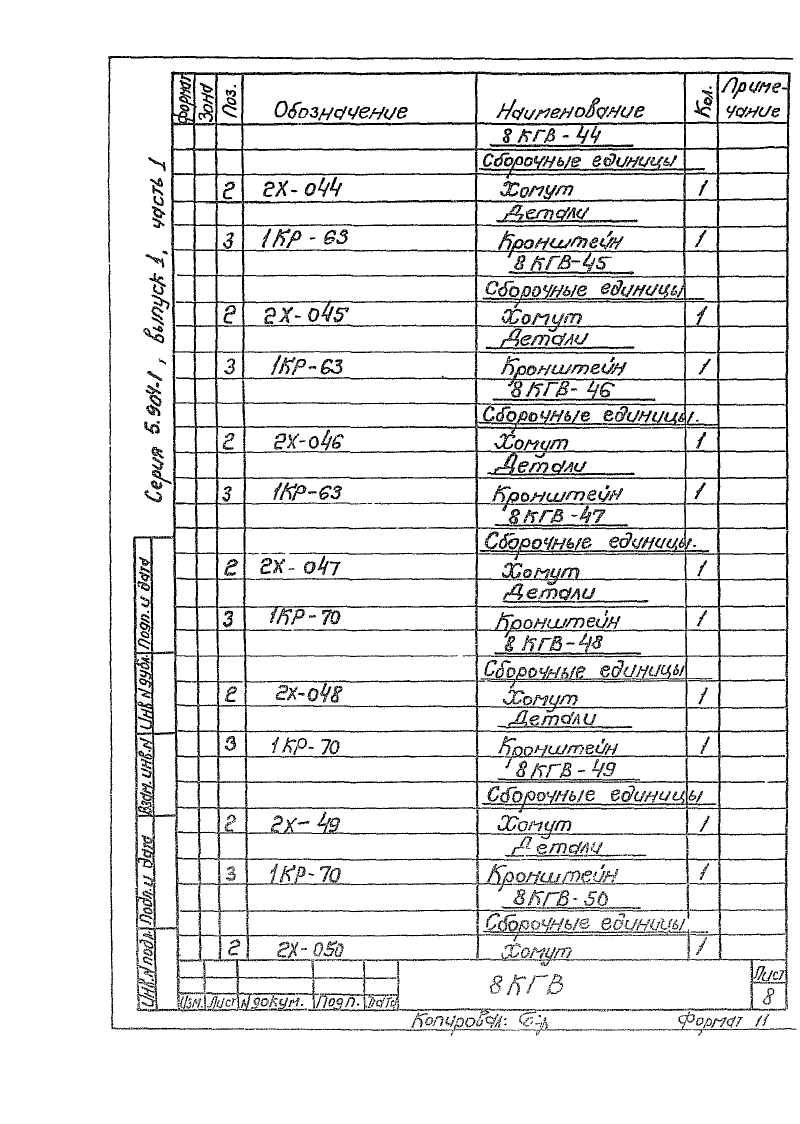 Серия 5.904-1, выпуск 1, часть 1
Формат Зона Поз. Обозначение Наименование Кол. Приме-
чание
8КГВ-44
Сборочные единицы
2 2Х-044 Хомут 1
Детали
3 1КР-63 Кронштейн 1
8КГВ-45
Сборочные единицы
2 2Х-045 Хомут 1
Детали
3 1КР-63 Кронштейн 1
8КГВ-46
Сборочные единицы.
2 2Х-046 Хомут 1
Детали
3 1КР-63 Кронштейн 1
8КГВ-47
Сборочные единицы.
2 2Х-047 Хомут 1
Детали
3 1КР-70 Кронштейн 1
8КГВ-48
Сборочные единицы
2 2Х-048 Хомут 1
Детали
3 1КР-70 Кронштейн 1
8КГВ-49
Сборочные единицы
2 2Х-49 Хомут 1
Детали
3 1КР-70 Кронштейн 1
8КГВ-50
Сборочные единицы
2 2Х-050 Хомут 1
Инв.N подл. Подп. и дата Взам. инв.N Инв.N дубл. Подп. и дата
8КГВ
Лист
8
Изм. Лист N докум. Подп. Дата
Копировал: Формат 11